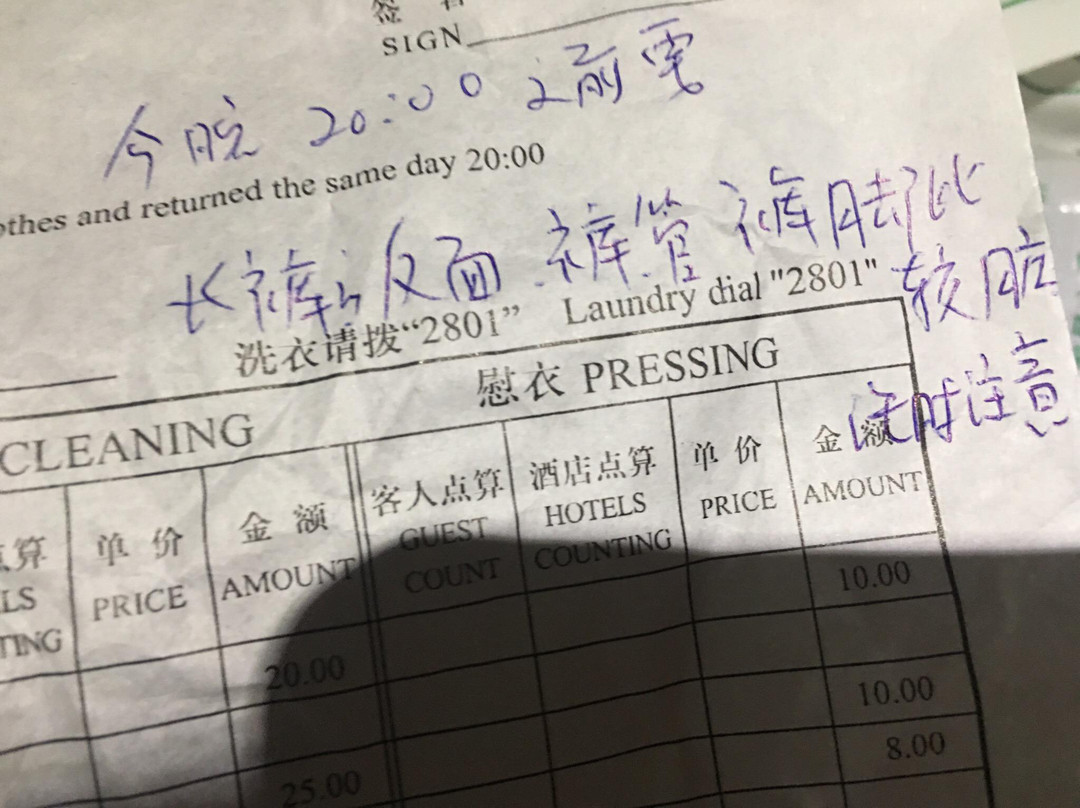 SIGN
今晚 20:00 之前需
othes and returned the same day 20:00
长裤的反面.裤管.裤脚比
较脏
洗衣请拨“2801” Laundry dial "2801"
注意
CLEANING
慰衣 PRESSING
点算 单价 金额 客人点算 酒店点算 单价 金额
LS PRICE AMOUNT GUEST HOTELS PRICE AMOUNT
TING COUNT COUNTING
10.00
20.00
10.00
25.00
8.00